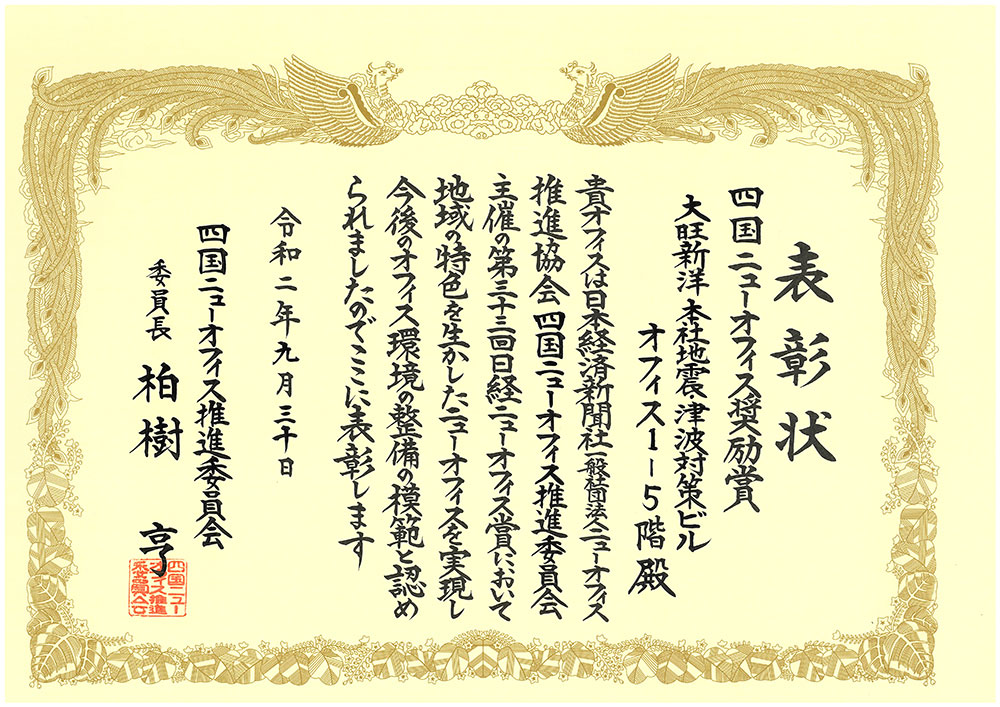 表彰状
四国ニューオフィス奨励賞
大旺新洋 本社地震・津波対策ビル
オフィス1-5階 殿
貴オフィスは日本経済新聞社一般社団法人ニューオフィス
推進協会四国ニューオフィス推進委員会
主催の第三十三回日経ニューオフィス賞において
地域の特色を生かしたニューオフィスを実現し
今後のオフィス環境の整備の模範と認め
られましたのでここに表彰します
令和二年九月三十日
四国ニューオフィス推進委員会
委員長 柏樹 亨
四国ニュー
オフィス推進